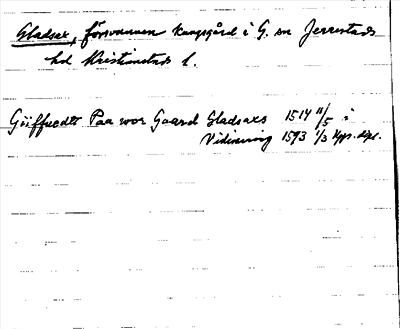 Gladsax, försvunnen kungsgård i G. sn Jerrestads
hd Kristianstads l.
Giiffuedtt Paa wor Gaard Gladsaxs 1514 11/5 i
Vidimering 1593 1/3 Kpr. dpl.